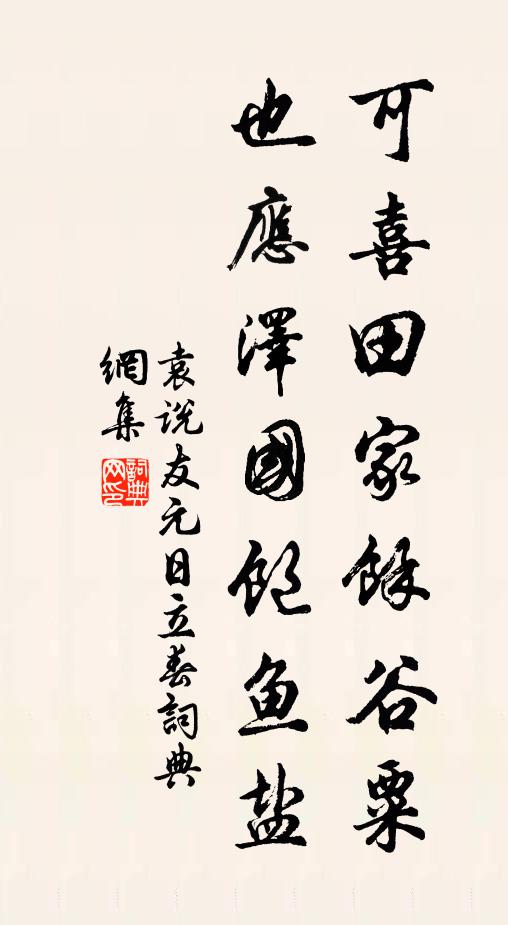 可喜田家餘谷粟
也應澤國飽魚盐
袁说友元日立春詞典
網集
詞典
网印